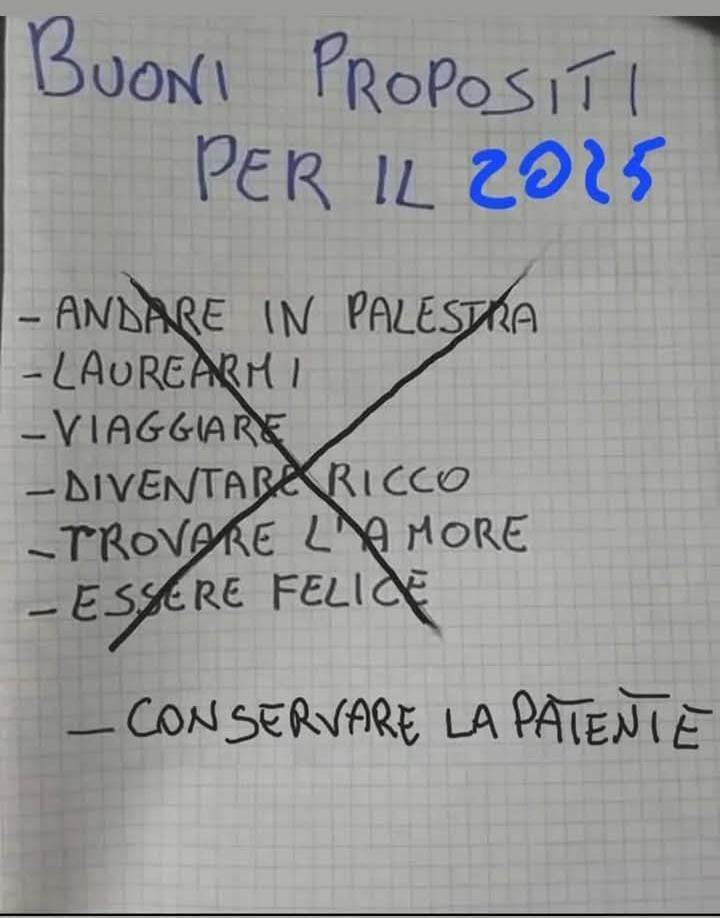 BUONI PROPOSITI
PER IL 2025
- ANDARE IN PALESTRA
- LAUREARMI
- VIAGGIARE
- DIVENTARE RICCO
- TROVARE L'AMORE
- ESSERE FELICE
- CONSERVARE LA PATENTE